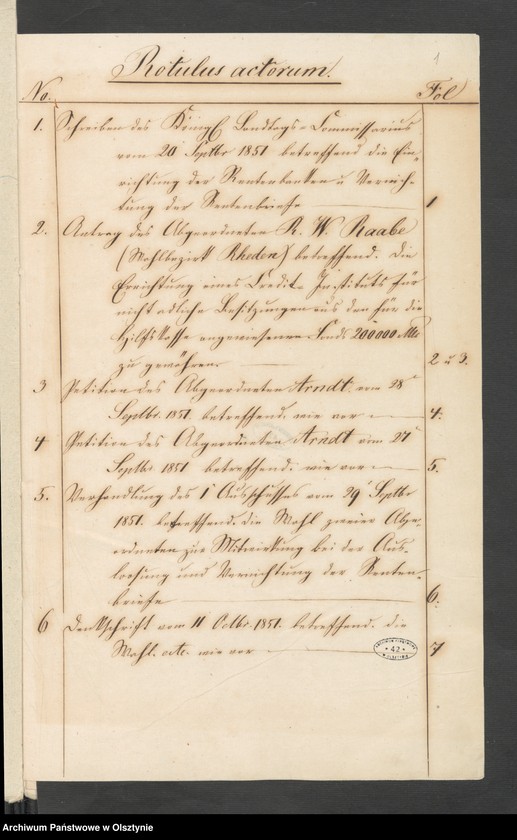 1
Rotulus actorum.
No. Fol
1. Schreiben des Königl Landtags-Commissarius
vom 20 Septbr 1851 betreffend die Ein-
richtung der Rentenbanken u Vernich-
tung der Rentenbriefe 1
2. Antrag des Abgeordneten R. W. Raabe
(Wahlbezirk Rheden) betreffend. die
Errichtung eines Credit-Instituts für
nicht adliche Besitzungen aus den für die
Hilfskasse angewiesenen Fonds 200000
zu gewähren. 2 u 3.
3 Petition des Abgeordneten Arndt. vom 28
Septbr. 1851. betreffend. wie vor 4.
4 Petition des Abgeordneten Arndt vom 27
Septbr 1851 betreffend. wie vor 5.
5. Verhandlung des 1 Ausschusses vom 29 Septbr
1851. betreffend. die Wahl zweier Abge-
ordneten zur Mitwirkung bei der Aus-
loosung und Vernichtung der Renten-
briefe 6.
6 Denkschrift vom 11 Octbr. 1851. betreffend. die
Wahl. etc. wie vor 7
42
Archiwum Państwowe w Olsztynie